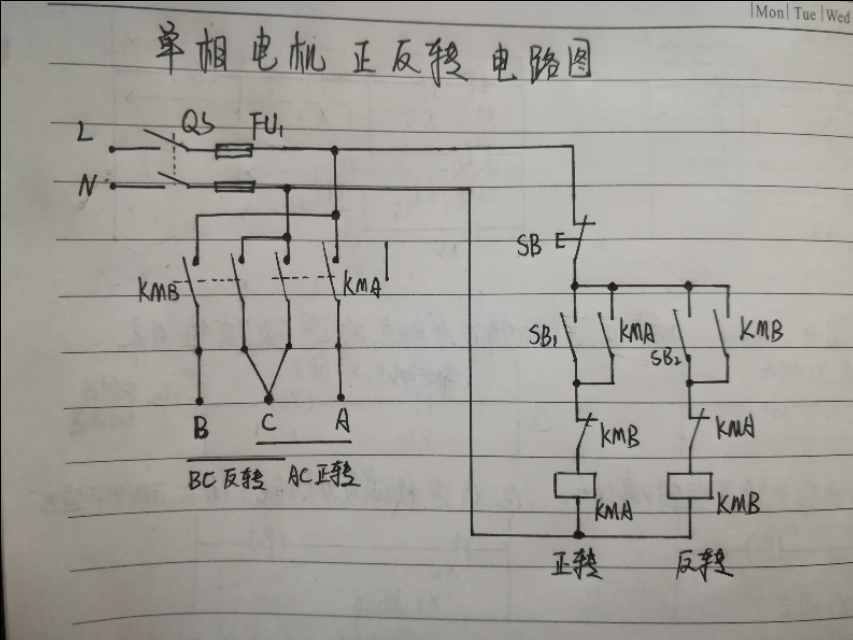 Mon Tue Wed
单相电机正反转电路图
L QS FU1
N
SB E
KMB KMA
SB1 KMA SB2 KMB
B C A
KMB KMA
BC反转 AC正转
KMA KMB
正转 反转